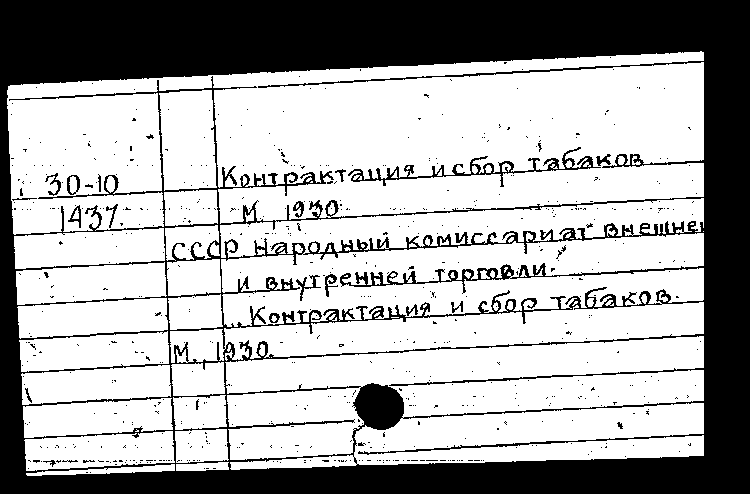 Контрактация и сбор табаков
30-10
М., 1930
1437.
СССР Народный комиссариат внешней
и внутренней торговли.
... Контрактация и сбор табаков.
М., 1930.